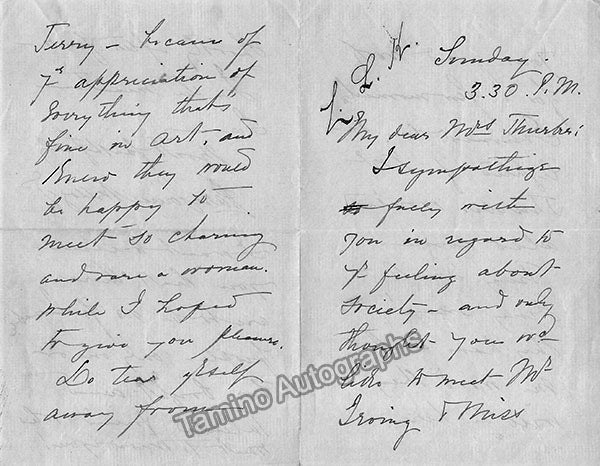 L. L. H. Sunday.
3.30. P.M.
My dear Mrs Thurber:
I sympathize
fully with
you in regard to
yr feeling about
society – and only
thought you wd
like to meet Mr
Irving & Miss
Terry – because of
yr appreciation of
everything that's
fine in art, and
knew they would
be happy to
meet so charming
and rare a woman.
while I hoped
to give you pleasure.
Do tear y'self
away from
Tamino Autographs